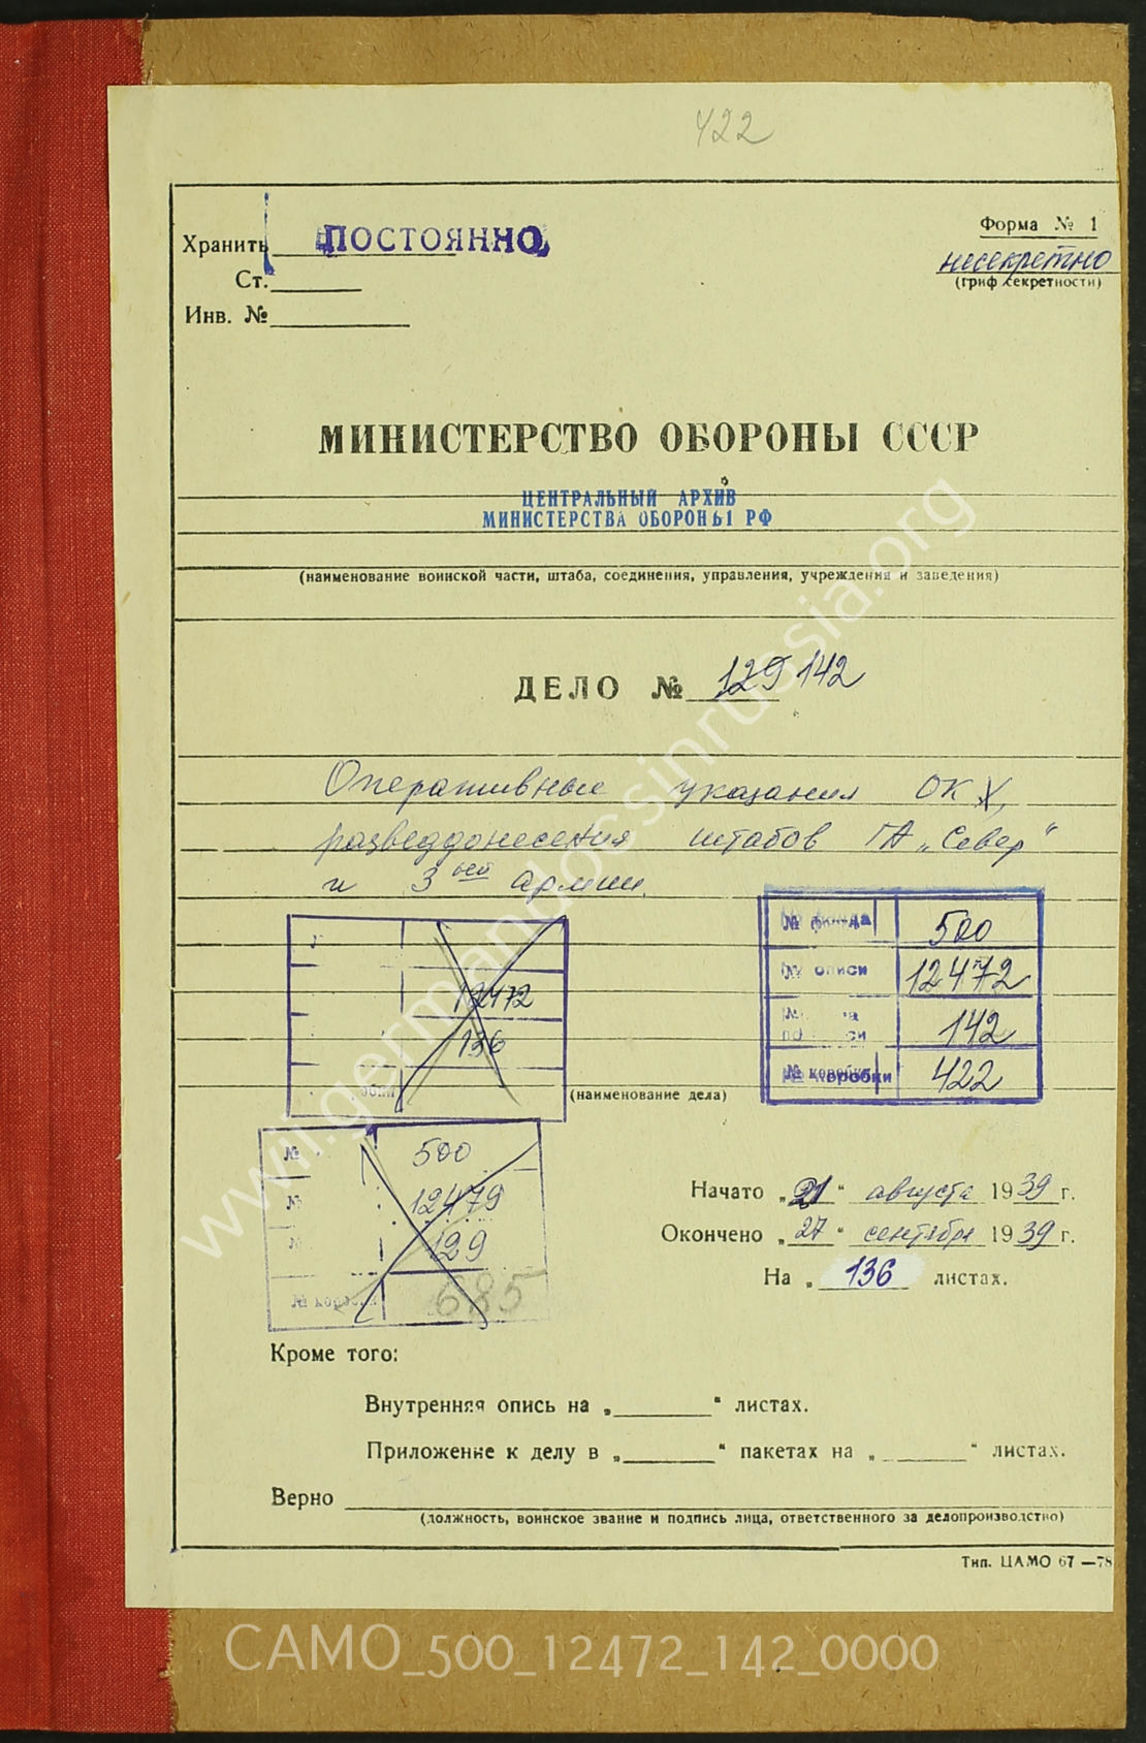 422
Хранить ПОСТОЯННО
Форма № 1
несекретно
(гриф секретности)
Ст.
Инв. №
МИНИСТЕРСТВО ОБОРОНЫ СССР
ЦЕНТРАЛЬНЫЙ АРХИВ
МИНИСТЕРСТВА ОБОРОНЫ РФ
(наименование воинской части, штаба, соединения, управления, учреждения и заведения)
ДЕЛО № 129 142
Оперативные указания ОКХ,
разведдонесения штабов ГА „Север"
и 3ей армии.
№ фонда 500
№ описи 12472
142
№ коробки 422
12472
136
(наименование дела)
№ 500
№ 12479
№ 129
№ коробки 685
Начато „21" августа 1939 г.
Окончено „27" сентября 1939 г.
На „136 листах.
Кроме того:
Внутренняя опись на „ " листах.
Приложение к делу в „ " пакетах на „ " листах.
Верно
(должность, воинское звание и подпись лица, ответственного за делопроизводство)
Тип. ЦАМО 67—78
www.germandocsinrussia.org
CAMO_500_12472_142_0000